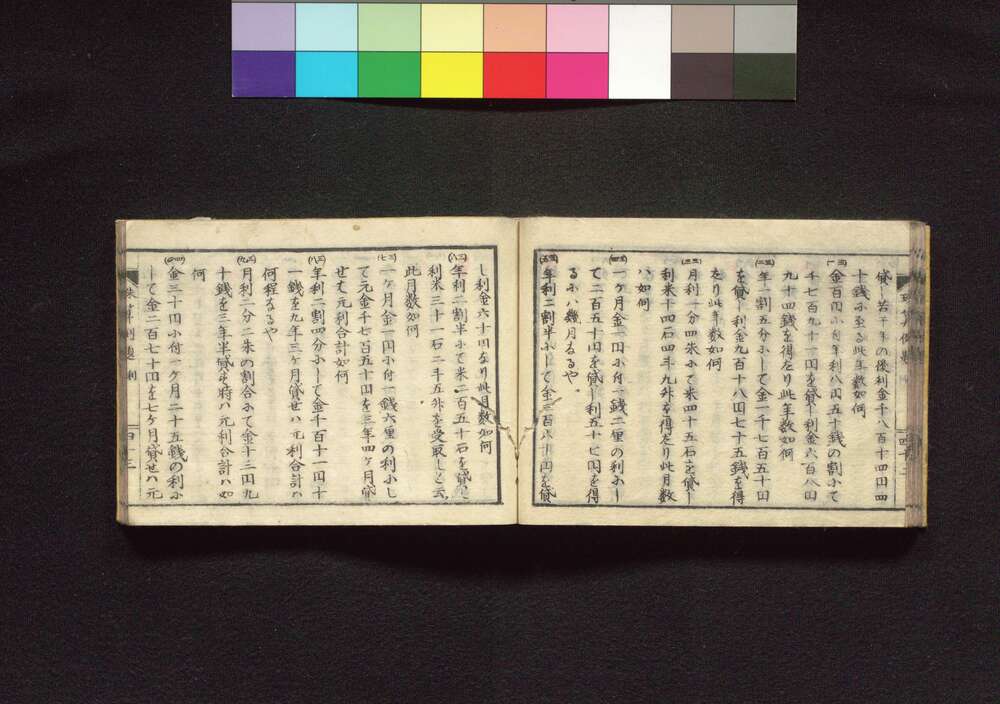 貸し若干年の後利金千八百十四円四
十銭に至る此年数如何
金百円に付年利八円五十銭の割にて
千七百九十一円を貸し利金六百八円
九十四銭を得たり此年数如何
年一割五分にして金一千七百五十円
を貸し利金九百十八円七十五銭を得
たり此年数如何
月利一分四朱にて米四十五石を貸し
利米十四石四斗九升を得たり此月数
ハ如何
一ヶ月金一円に付一銭二厘の利にし
て二百五十円を貸し利五十七円を得
るにハ幾月なるや
年利二割半にして金三百八十円を貸
し利金六十円なり此月数如何
年利二割半にて米二百五十石を貸し
利米三十一石二斗五升を受取しと云
此月数如何
一ヶ月金一円に付一銭六厘の利にし
て元金千七百五十円を三年四ヶ月貸
せば元利合計如何
年利二割四分にして金千百十一円十
一銭を九年三ヶ月貸せハ元利合計ハ
何程なるや
月利二分二朱の割合にて金十三円九
十銭を三年半貸す時ハ元利合計ハ如
何
金三十円に付一ヶ月二十五銭の利に
して金二百七十円を七ヶ月貸せハ元
四十三